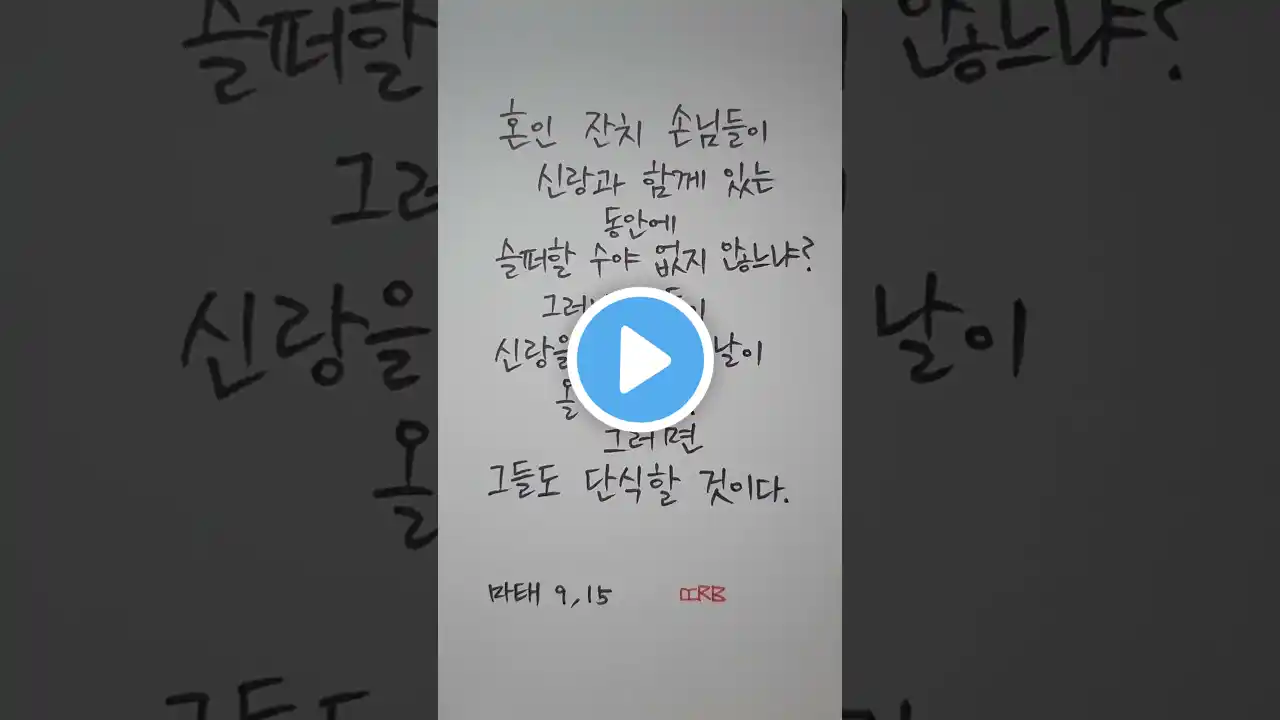 혼인 잔치 손님들이
신랑과 함께 있는
동안에
슬퍼할 수야 없지 않느냐?
신랑을 날이
올
그러면
그들도 단식할 것이다.
마태 9,15